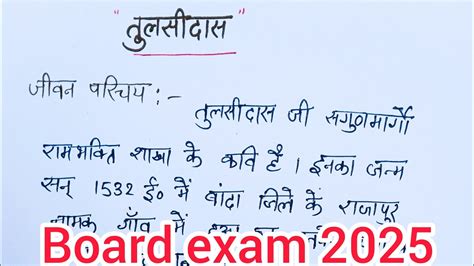 "तुलसीदास"
जीवन परिचय :-
तुलसीदास जी सगुणमार्गी
रामभक्ति शाखा के कवि है । इनका जन्म
सन् 1532 ई० में बांदा जिले के राजापुर
नामक गाँव में
Board exam 2025